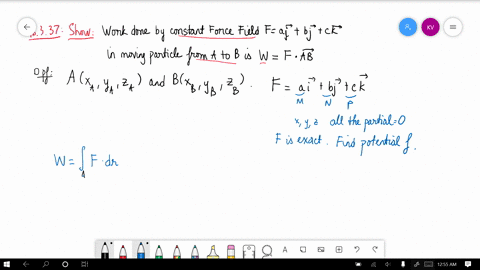 16.3.37. Show: Work done by constant Force Field F = ai⃗ + bj⃗ + ck⃗
in moving particle from A to B is W = F · AB⃗
Pf: A(x_A, y_A, z_A) and B(x_B, y_B, z_B).
F = ai⃗ + bj⃗ + ck⃗
M N P
x, y, z all the partial = 0
F is exact. Find potential f.
W = ∫_A F · dr
KV
12:55 AM